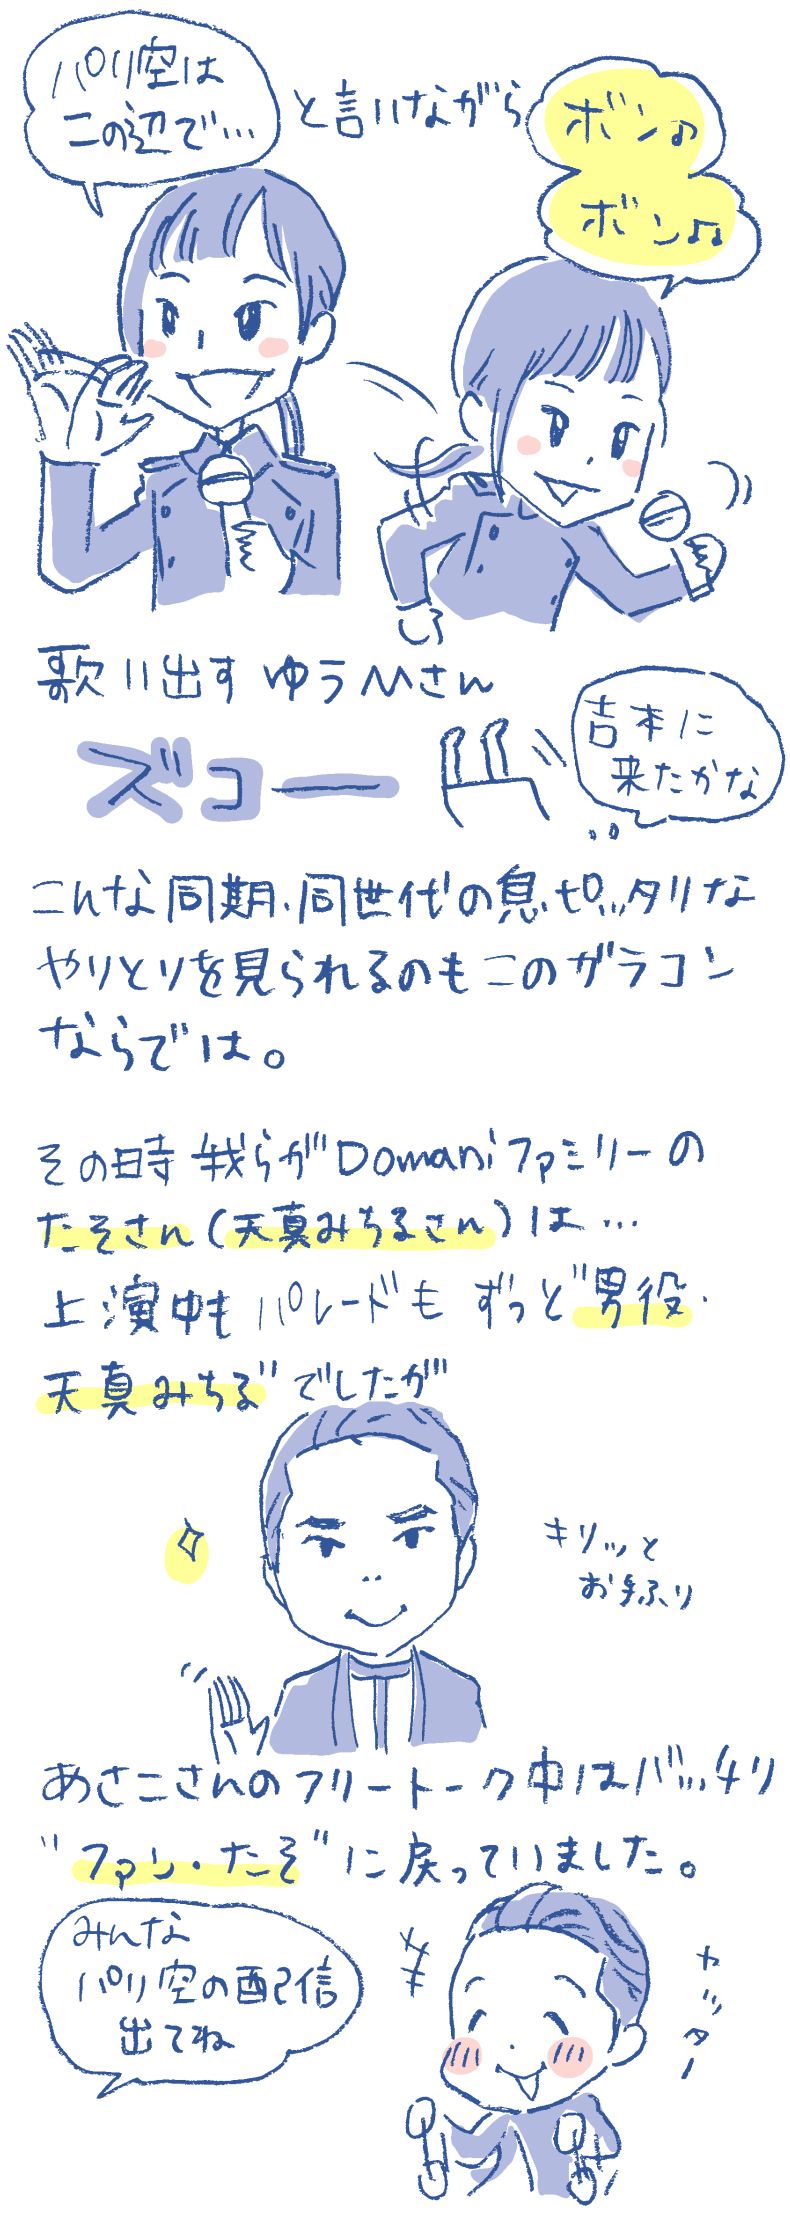 パリ空は
この辺で…
と言いながら
ボン♪
ボン♫
歌い出すゆうひさん
ズコー
吉本に
来たかな
こんな同期、同世代の息ピッタリな
やりとりを見られるのもこのガラコン
ならでは。
その時 我らがDomaniファミリーの
たそさん(天真みちるさん)は…
上演中もパレードも ずっと"男役・
天真みちる"でしたが
キリッと
お手ふり
あさこさんのフリートーク中はバッチリ
"ファン・たそ"に戻っていました。
みんな
パリ空の配信
出てね
ヤッター